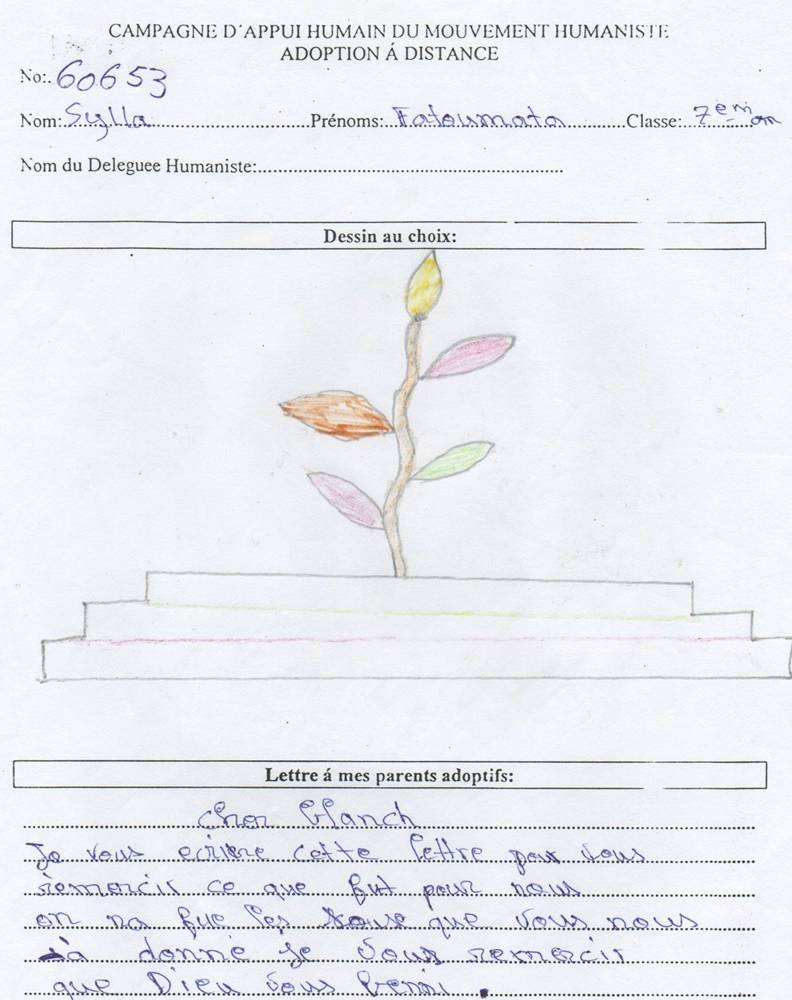 CAMPAGNE D'APPUI HUMAIN DU MOUVEMENT HUMANISTE
ADOPTION Á DISTANCE
No:. 60653
Nom: Sylla Prénoms: Fatoumata Classe: 7em an
Nom du Deleguee Humaniste:
Dessin au choix:
Lettre á mes parents adoptifs:
cher blanch
Je vous ecrire cette lettre pour vous
remercir ce que fut pour nous
on na fue les que vous nous
a donné je vous remercir
que Dieu vous beni .